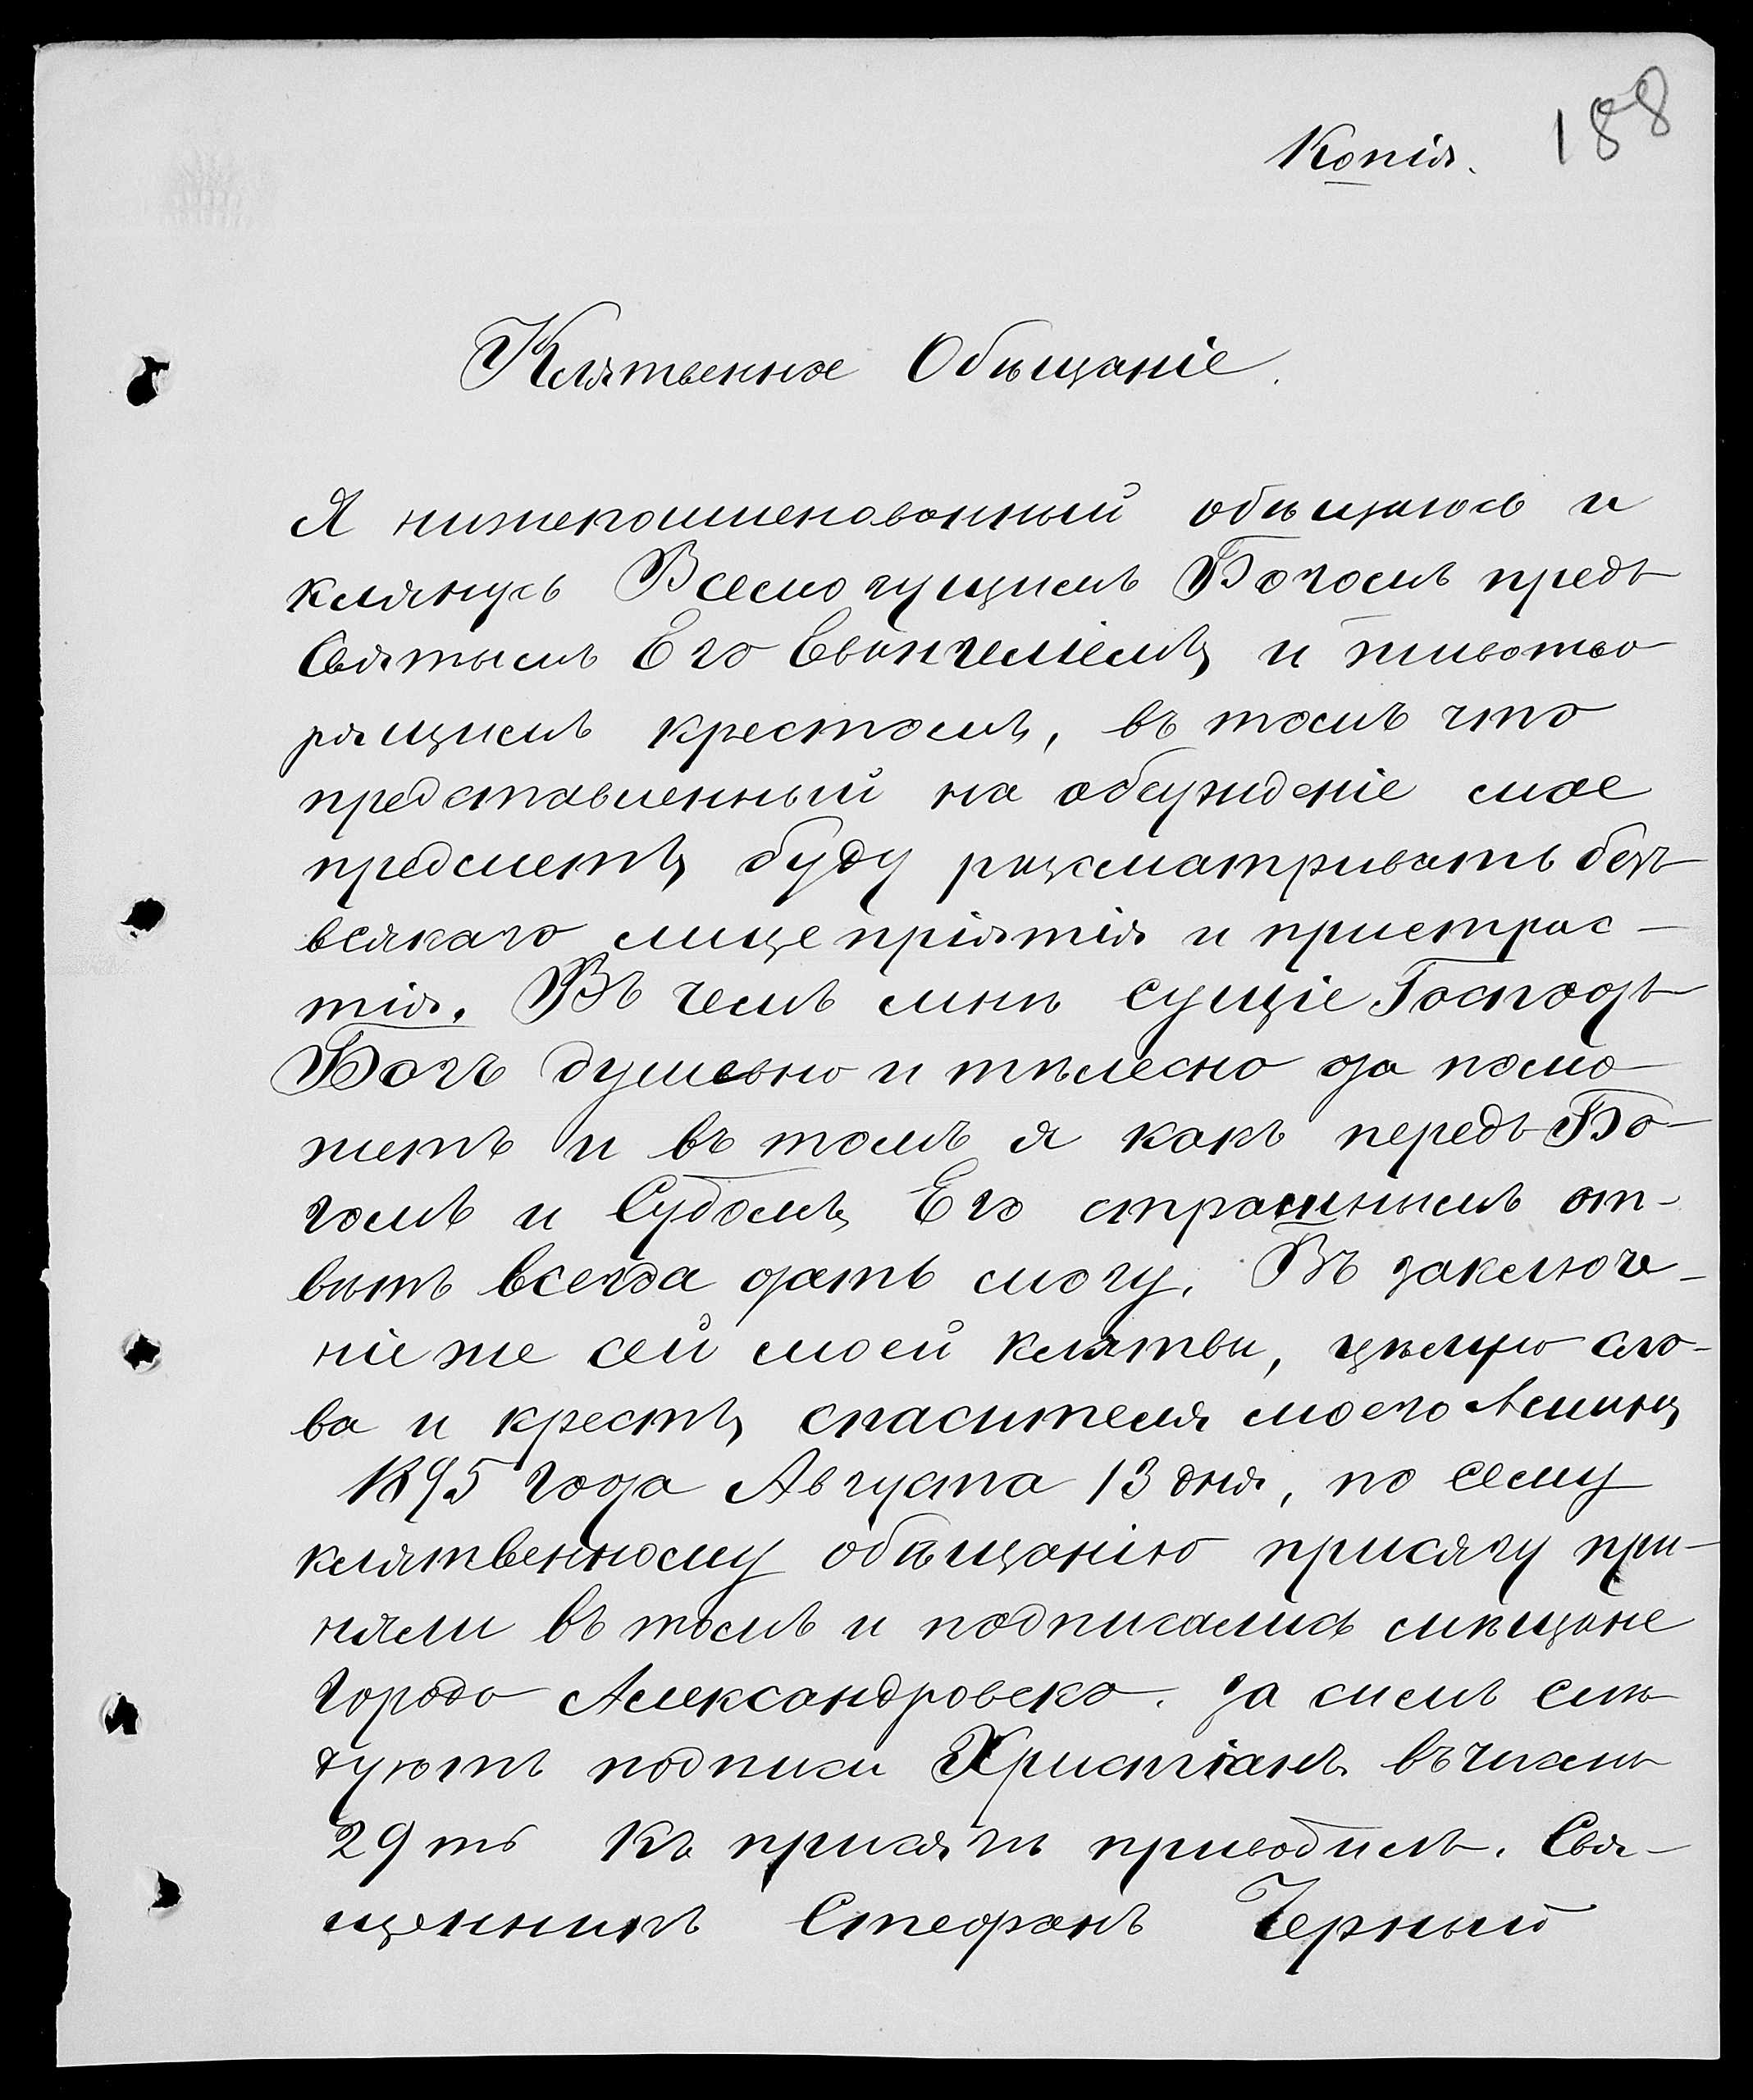 188
Копія.
Клятвенное Обѣщаніе.
Я нижепоименованный обѣщаюсь и
клянусь Всемогущимъ Богомъ предъ
Святымъ Его Евангеліемъ и животво
рящимъ крестомъ, въ томъ что
представленный на обсужденіе мое
предметъ буду разсматривать безъ
всякаго лицепріятія и пристрас-
тія. Въ чемъ мнѣ сущіе Господъ
Богъ душевно и тѣлесно да помо-
жетъ и въ томъ я какъ передъ Бо-
гомъ и Судомъ Его страшнымъ от-
вѣтъ всегда дать могу. Въ заключе-
ніе же сей моей клятвы, цѣлую сло-
ва и крестъ спасителя моего Аминь
1895 года Августа 13 дня, по сему
клятвенному обѣщанію присягу при-
няли въ томъ и подписались мѣщане
города Александровска. за симъ слѣ
дуютъ подписи Христіанъ въ числѣ
29 ть Къ присягѣ приводилъ. Свя-
щенникъ Стефанъ Черный